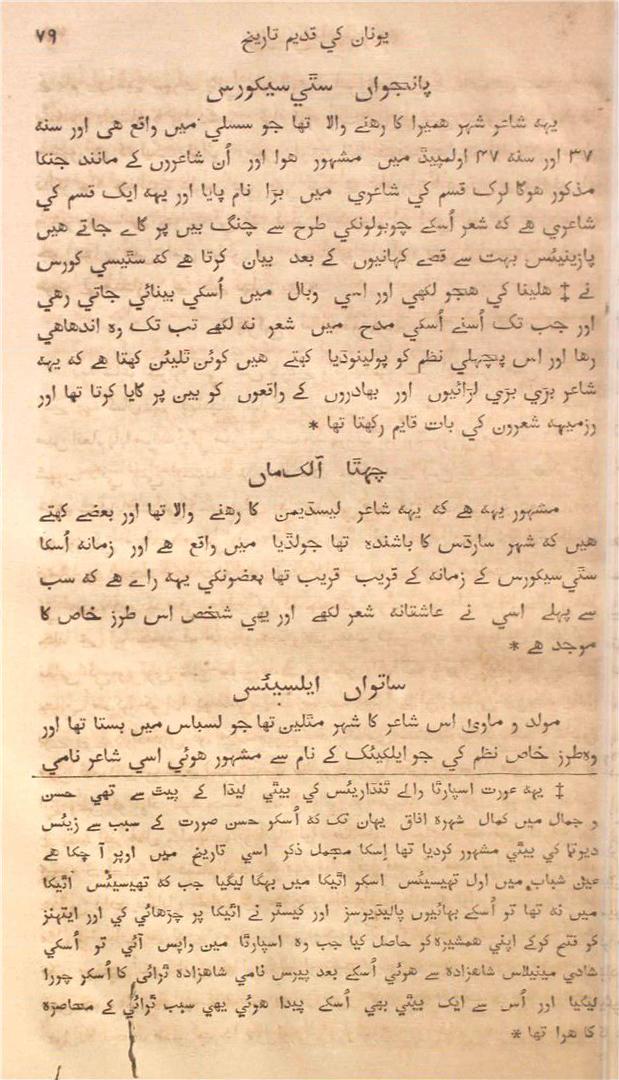 یونان کي قدیم تاریخ ۷۹
پانچواں سٹي سیکورس
یہہ شاعر شہر ھمیرا کا رھنے والا تھا جو سسلي میں واقع ھی اور سنہ
۳۷ اور سنہ ۴۷ اولمپیڈ میں مشہور ھوا اور اُن شاعروں کے مانند جنکا
مذکور ھوگا لرک قسم کي شاعري میں بڑا نام پایا اور یہہ ایک قسم کي
شاعري ھے کہ شعر اُسکے چوبولونکي طرح سے چنگ بیں پر گاے جاتے ھیں
پازینیئس بہت سے قصے کہانیوں کے بعد بیان کرتا ھے کہ سٹیسي کورس
نے ‡ ھلینا کي ھجو لکھي اور اسي وبال میں اُسکي بینائي جاتي رھي
اور جب تک اُسنے اُسکي مدح میں شعر نہ لکھے تب تک وہ اندھاھي
رھا اور اس پچھلي نظم کو پولینوڈیا کہتے ھیں کوئن ٹلیئن کہتا ھے کہ یہہ
شاعر بڑي بڑي لڑائیوں اور بھادروں کے واقعوں کو بین پر گایا کرتا تھا اور
رزمیہہ شعرون کي بات قایم رکھتا تھا *
چھٹا آلک ماں
مشہور یہہ ھے کہ یہہ شاعر لیسڈیمن کا رھنے والا تھا اور بعضے کہتے
ھیں کہ شہر سارڈس کا باشندہ تھا جولڈیا میں واقع ھے اور زمانہ اُسکا
سٹي سیکورس کے زمانہ کے قریب قریب تھا بعضونکي یہہ راے ھے کہ سب
سے پہلے اسي نے عاشقانہ شعر لکھے اور یھي شخص اس طرز خاص کا
موجد ھے *
ساتواں ایلسیئس
مولد و ماوی اس شاعر کا شہر مٹلین تھا جو لسباس میں بستا تھا اور
وہ طرز خاص نظم کي جو ایلکیئک کے نام سے مشہور ھوئي اسي شاعر نامي
‡ یہہ عورت اسپارٹا والے ٹنڈاریئس کي بیٹي لیڈا کے پیٹ سے تھي حسن
و جمال میں کمال شہرہ آفاق یہان تک کہ اُسکو حسن صورت کے سبب سے زیئس
دیوتا کي بیٹي مشہور کردیا تھا اِسکا مجمل ذکر اسي تاریخ میں اوپر آ چکا ھے
عین شباب میں اول تھیسیئس اسکو اٹیکا میں بھگا لیگیا جب کہ تھیسیئس اٹیکا
میں نہ تھا تو اُسکے بھائیوں پالیڈیوسز اور کیسٹر نے اٹیکا پر چڑھائي کي اور ایتھنز
کو فتح کرکے اپني ھمشیرہ کو حاصل کیا جب وہ اسپارٹا مین واپس آئي تو اُسکي
شادي مینیلاس شاھزادہ سے ھوئي اُسکے بعد پیرس نامي شاھزادہ ٹرائی کا اُسکو چورا
لیگیا اور اُس سے ایک بیٹي بھي اُسکے پیدا ھوئي یھي سبب ٹرائي کے محاصرہ
کا ھوا تھا *